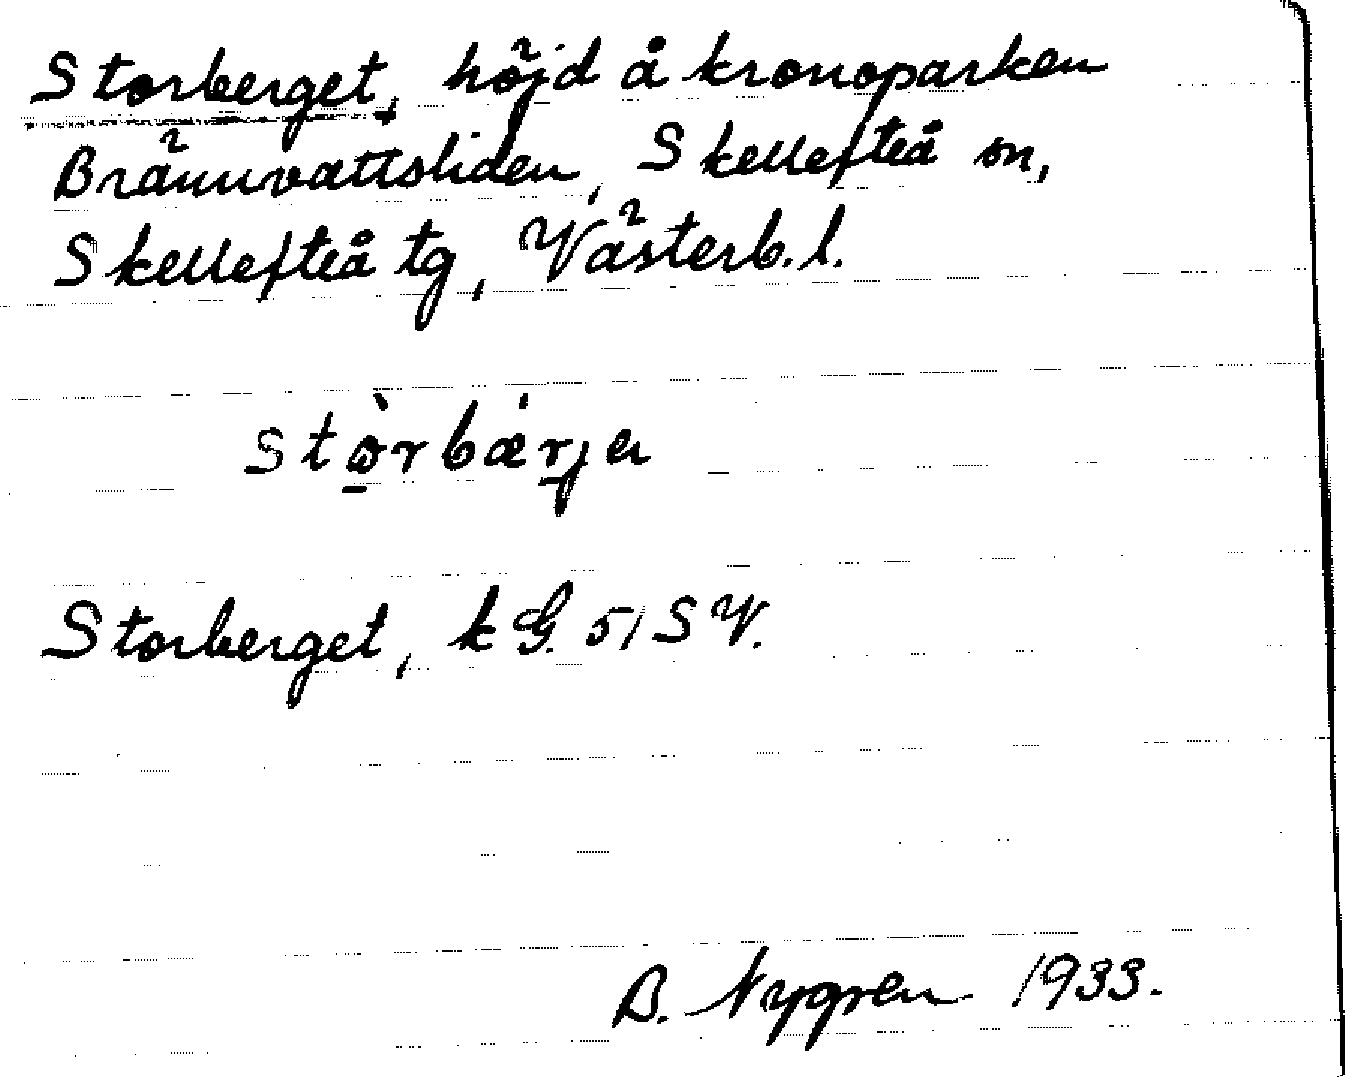 Storberget, höjd å kronoparken
Brännvattsliden, Skellefteå sn,
Skellefteå tg, Västerb. l.
Stòrbǽrjen
Storberget, k G. 51 SV.
B. Nygren 1933.